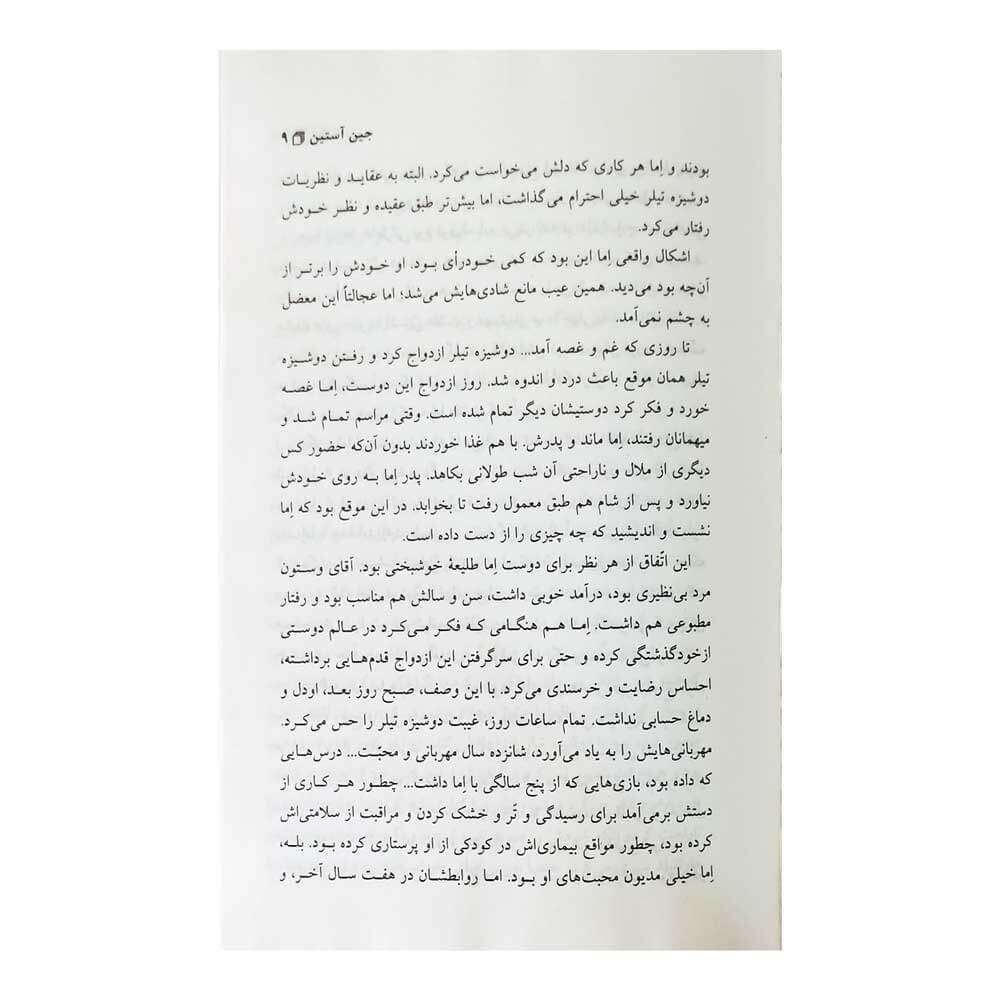 جین آستین ۹
بودند و اِما هر کاری که دلش می‌خواست می‌کرد. البته به عقاید و نظریات
دوشیزه تیلر خیلی احترام می‌گذاشت، اما بیش‌تر طبق عقیده و نظر خودش
رفتار می‌کرد.
اشکال واقعی اِما این بود که کمی خودرأی بود. او خودش را برتر از
آن‌چه بود می‌دید. همین عیب مانع شادی‌هایش می‌شد؛ اما عجالتاً این معضل
به چشم نمی‌آمد.
تا روزی که غم و غصه آمد... دوشیزه تیلر ازدواج کرد و رفتن دوشیزه
تیلر همان موقع باعث درد و اندوه شد. روز ازدواج این دوست، اِما غصه
خورد و فکر کرد دوستیشان دیگر تمام شده است. وقتی مراسم تمام شد و
میهمانان رفتند، اِما ماند و پدرش. با هم غذا خوردند بدون آن‌که حضور کس
دیگری از ملال و ناراحتی آن شب طولانی بکاهد. پدر اِما به روی خودش
نیاورد و پس از شام هم طبق معمول رفت تا بخوابد. در این موقع بود که اِما
نشست و اندیشید که چه چیزی را از دست داده است.
این اتّفاق از هر نظر برای دوست اِما طلیعهٔ خوشبختی بود. آقای وستون
مرد بی‌نظیری بود، درآمد خوبی داشت، سن و سالش هم مناسب بود و رفتار
مطبوعی هم داشت. اِما هم هنگامی که فکر می‌کرد در عالم دوستی
ازخودگذشتگی کرده و حتی برای سرگرفتن این ازدواج قدم‌هایی برداشته،
احساس رضایت و خرسندی می‌کرد. با این وصف، صبح روز بعد، اودل و
دماغ حسابی نداشت. تمام ساعات روز، غیبت دوشیزه تیلر را حس می‌کرد.
مهربانی‌هایش را به یاد می‌آورد، شانزده سال مهربانی و محبّت... درس‌هایی
که داده بود، بازی‌هایی که از پنج سالگی با اِما داشت... چطور هر کاری از
دستش برمی‌آمد برای رسیدگی و تَر و خشک کردن و مراقبت از سلامتی‌اش
کرده بود، چطور مواقع بیماری‌اش در کودکی از او پرستاری کرده بود. بله،
اِما خیلی مدیون محبت‌های او بود. اما روابطشان در هفت سال آخر، و